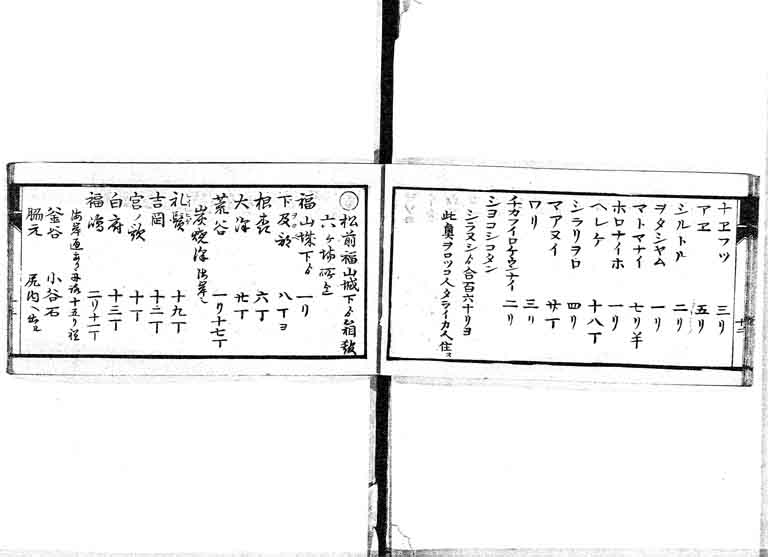 ナヱフツ 三リ
アヱ 五リ
シルトル 二リ
ヲタシヤム 一リ
マトマナイ 七リ半
ホロナイホ 一リ
ヘレケ 十八丁
シラリヲロ 四リ
マアヌイ 廿丁
ワリ 三リ
チカフイロケウシナイ 二リ
ショコシコタン
シラヌシゟ合百六十リヨ
此奥ヲロッコ人タライカ人住ス
十二
松前福山城下ゟ箱
六ケ場所
福山城下ゟ 一リ
下及部 八丁ヨ
根森 六丁
大澤 廿丁
荒谷 一リ十七丁
炭焼澤
礼髭 十九丁
吉岡 十三丁
宮ノ歌 十丁
白府 十三丁
福嶋 二リ十一丁
海岸通あり 十五リ程
釜谷 小谷石
脇元 尻内